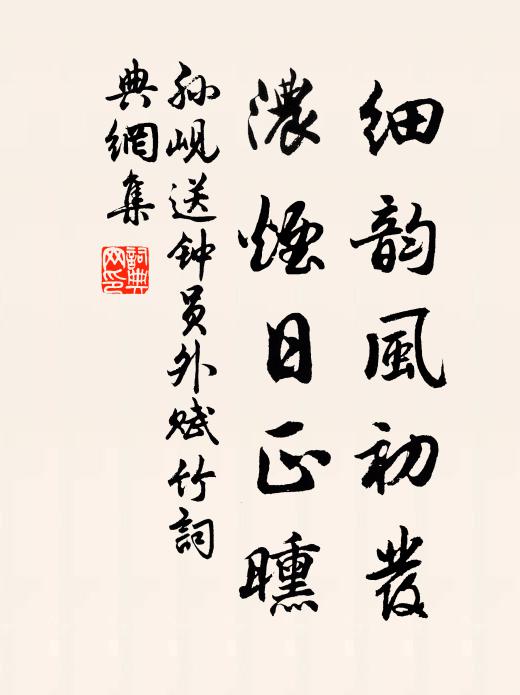 细韵風初發
濃煙日正曛
孙岘送钟员外赋竹詞
典網集
詞典
网印